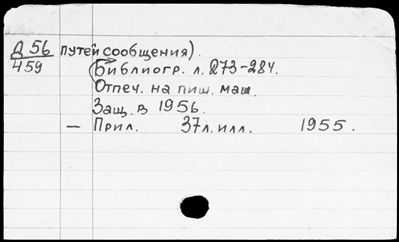 Д 56 путей сообщения).
459 (Библиогр. л. 273-284.
Отпеч. на пиш. маш.
Защ. в 1956.
— Прил. 37 л. илл. 1955.